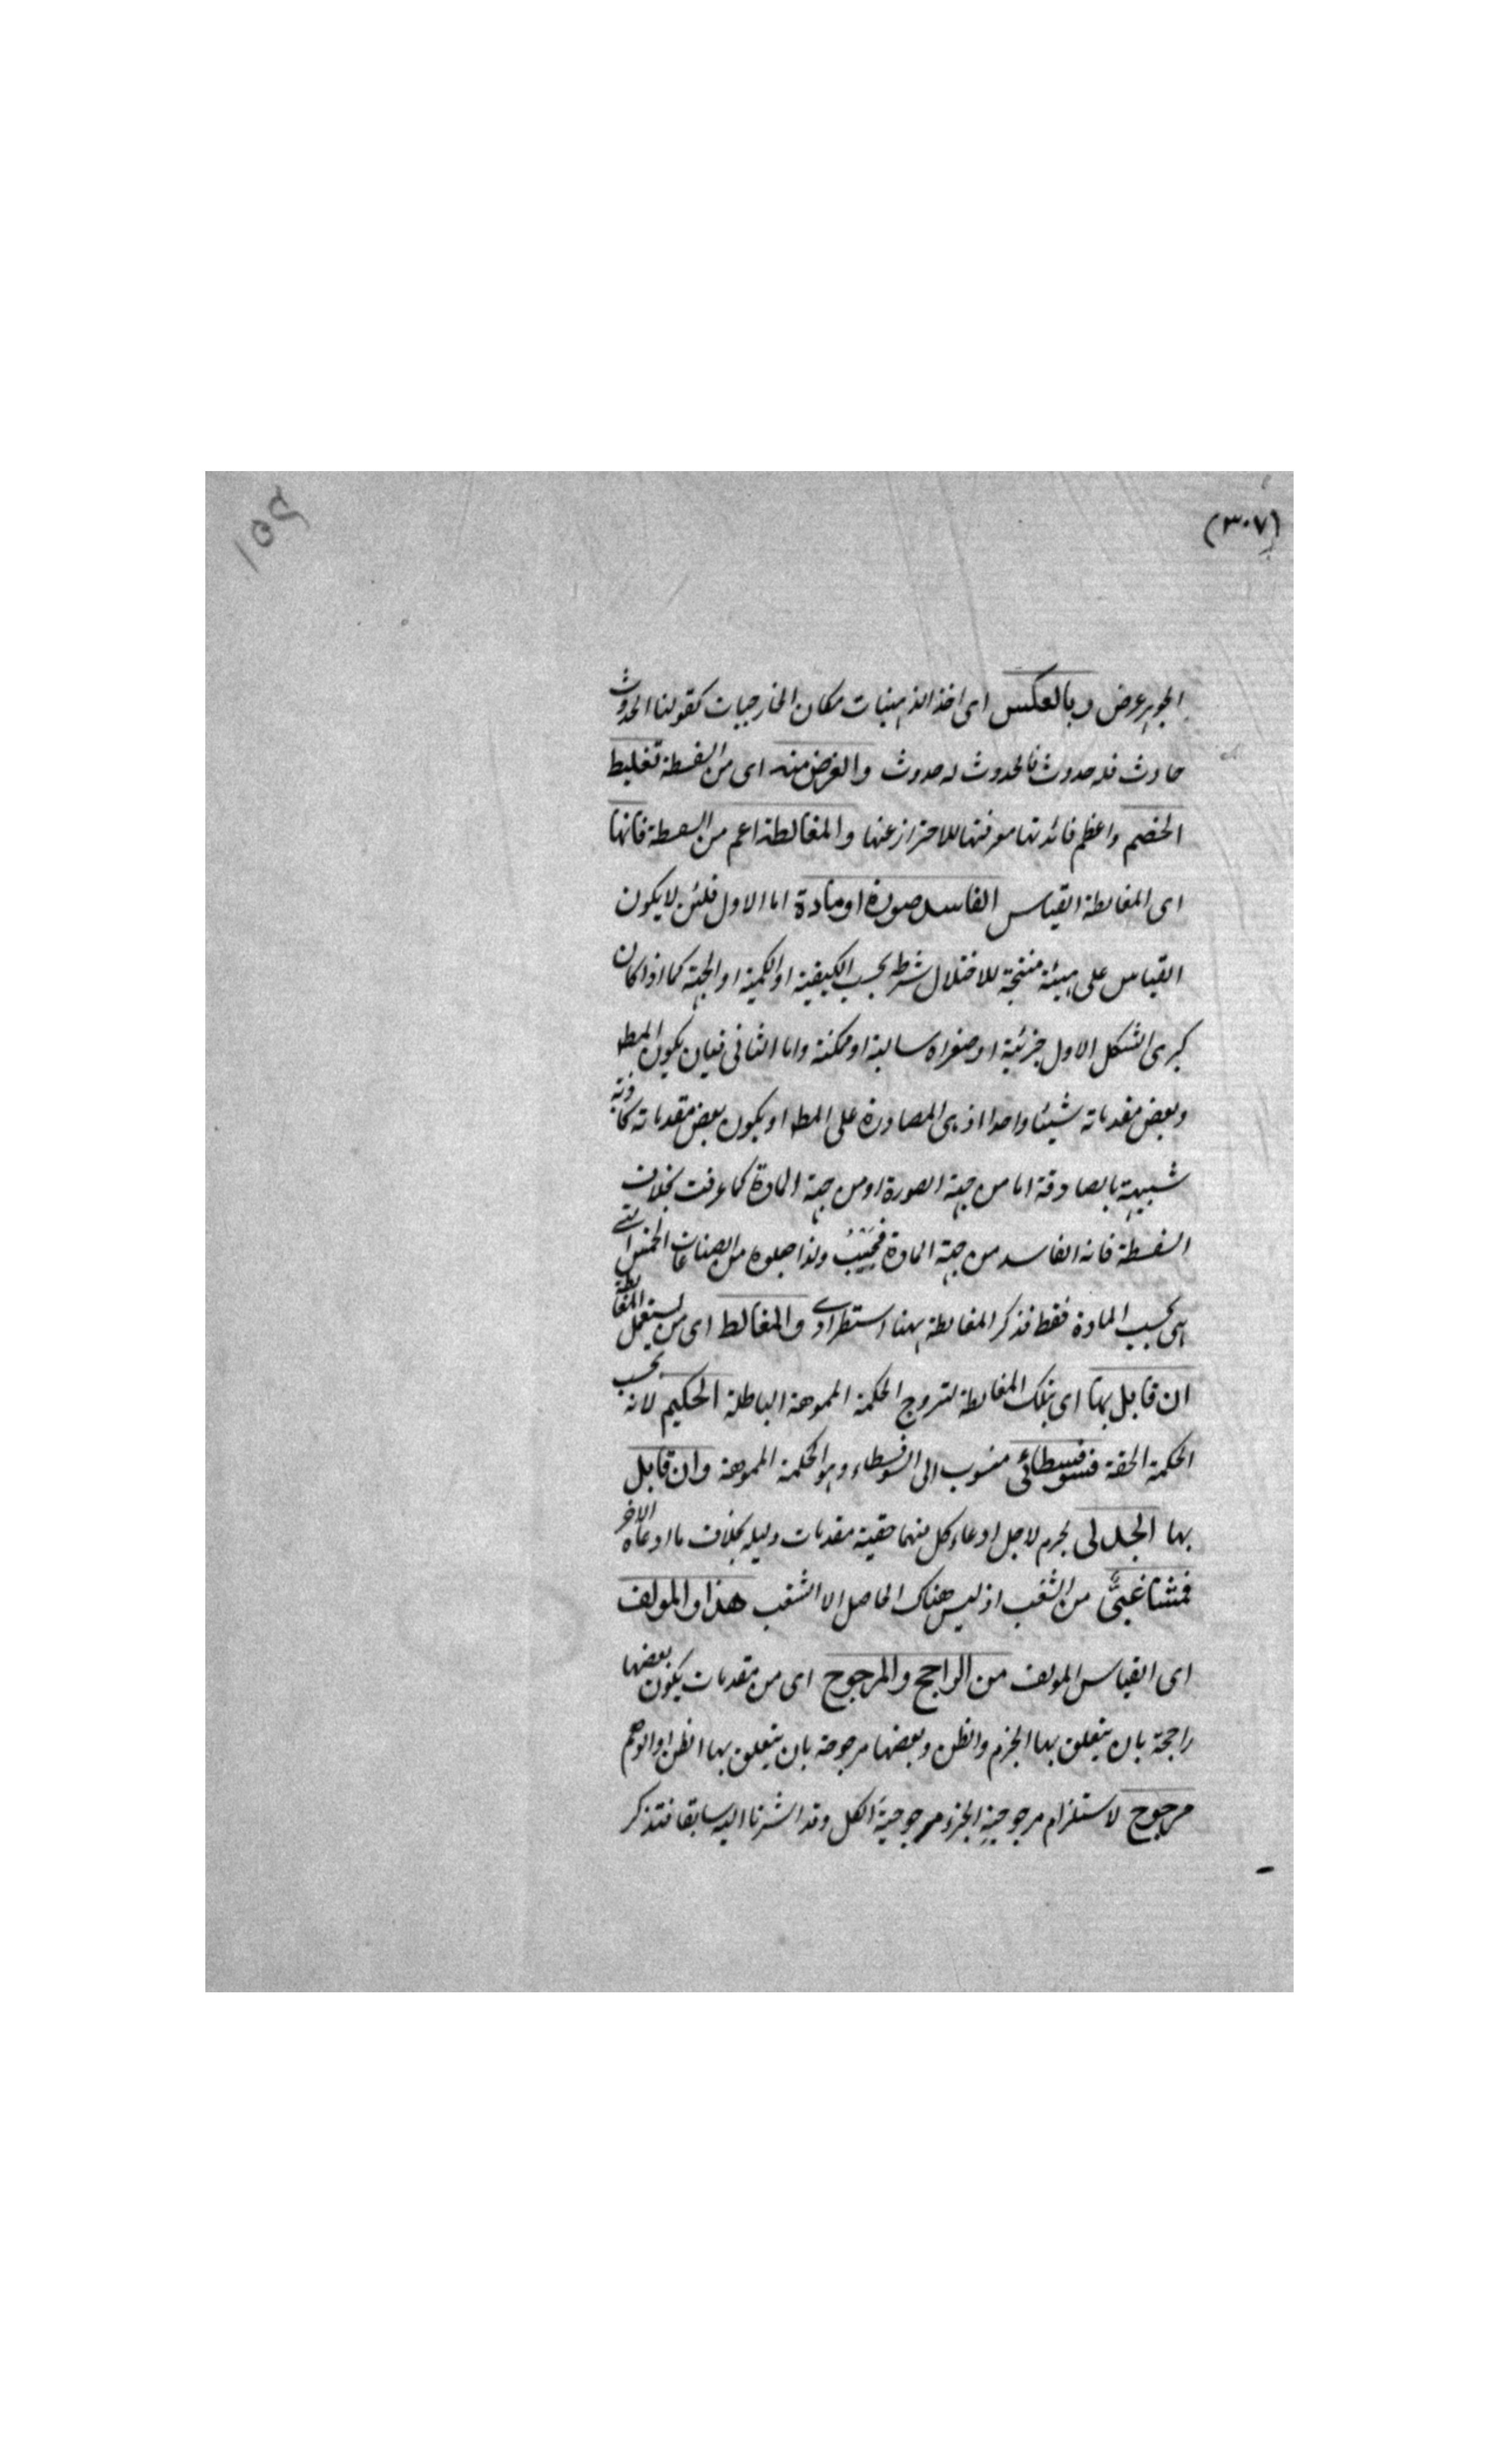 (٣٠٧)
١٥٤
الجوهر عرض وبالعكس اى اخذ الذهنيات مكان الخارجيات كقولنا الحدوث
حادث فله حدوث فالحدوث له حدوث والغرض منه اى من السفسطة تغليط
الخصم واعظم فائدتها معرفتها للاحتراز عنها والمغالطة اعم من السفسطة فانها
اى المغالطة القياس الفاسد صورة او مادة اما الاول فلئن لا يكون
القياس على هيئة منتجة للاختلال شرطه بحسب الكيفية او الكمية او الجهة كما اذا كان
كبرى الشكل الاول جزئية او صغراه سالبة او ممكنة واما الثانى فبان يكون المط
وبعض مقدماته شيئا واحدا اذ هى المصادرة على المط او يكون بعض مقدماته كاذبة
شبيهة بالصادقة اما من جهة الصورة او من جهة المادة كما عرفت بخلاف
السفسطة فانه الفاسد من جهة المادة فحسب ولذا جعلوه من الصناعات الخمس التے
هى بحسب المادة فقط فذكر المغالطة ههنا استطرادے والمغالط اى من يستعمل المغالطة
ان قابل بها اى بتلك المغالطة لتروج الحكمة المموهة الباطلة الحكيم لانه يحسب
الحكمة الحقة فسوفسطائى منسوب الى السوفسطاء وهو الحكمة المموهة وان قابل
بها الجدلى لاجل ادعاء كل منهما حقية مقدمات دليله بخلاف ما ادعاه الاخر
فمشاغبىٌّ من الشغب اذ ليس هناك الحاصل الا الشغب هذا والمولف
اى القياس المولف من الراجح والمرجوح اى من مقدمات يكون بعضها
راجحة بان يتعلق بها الجزم والظن وبعضها مرجوحة بان يتعلق بها الظن او الوهم
مرجوح لاستلزام مرجوحية الجزء مرجوحية الكل وقد اشرنا اليه سابقا فتذكر